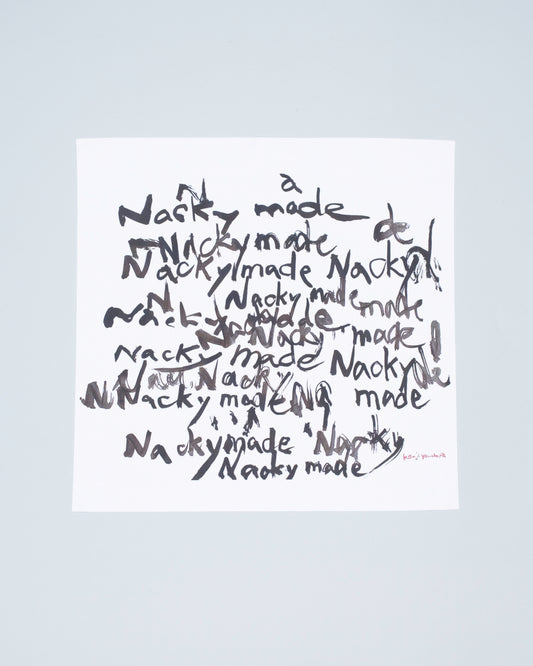 a
Nacky made
Nacky made de
Nacky made Nacky
N Nacky made made
Nacky made
Nacky made
Nacky made Nacky de
Nacky
N Nacky made Na made
Nacky made Nacky
Nacky made